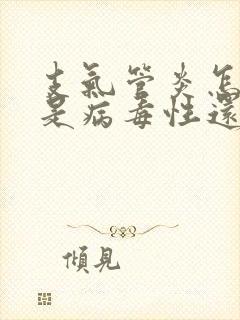 支氣管炎怎
是病毒性還
傾見